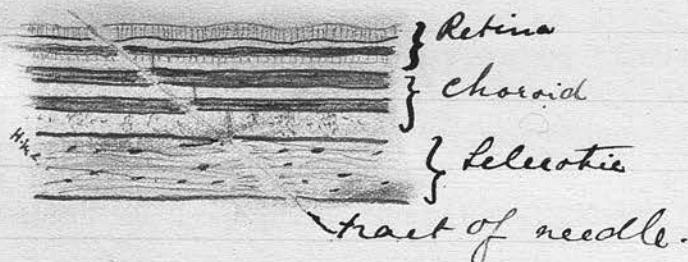 Retina
Choroid
Sclerotic
tract of needle.